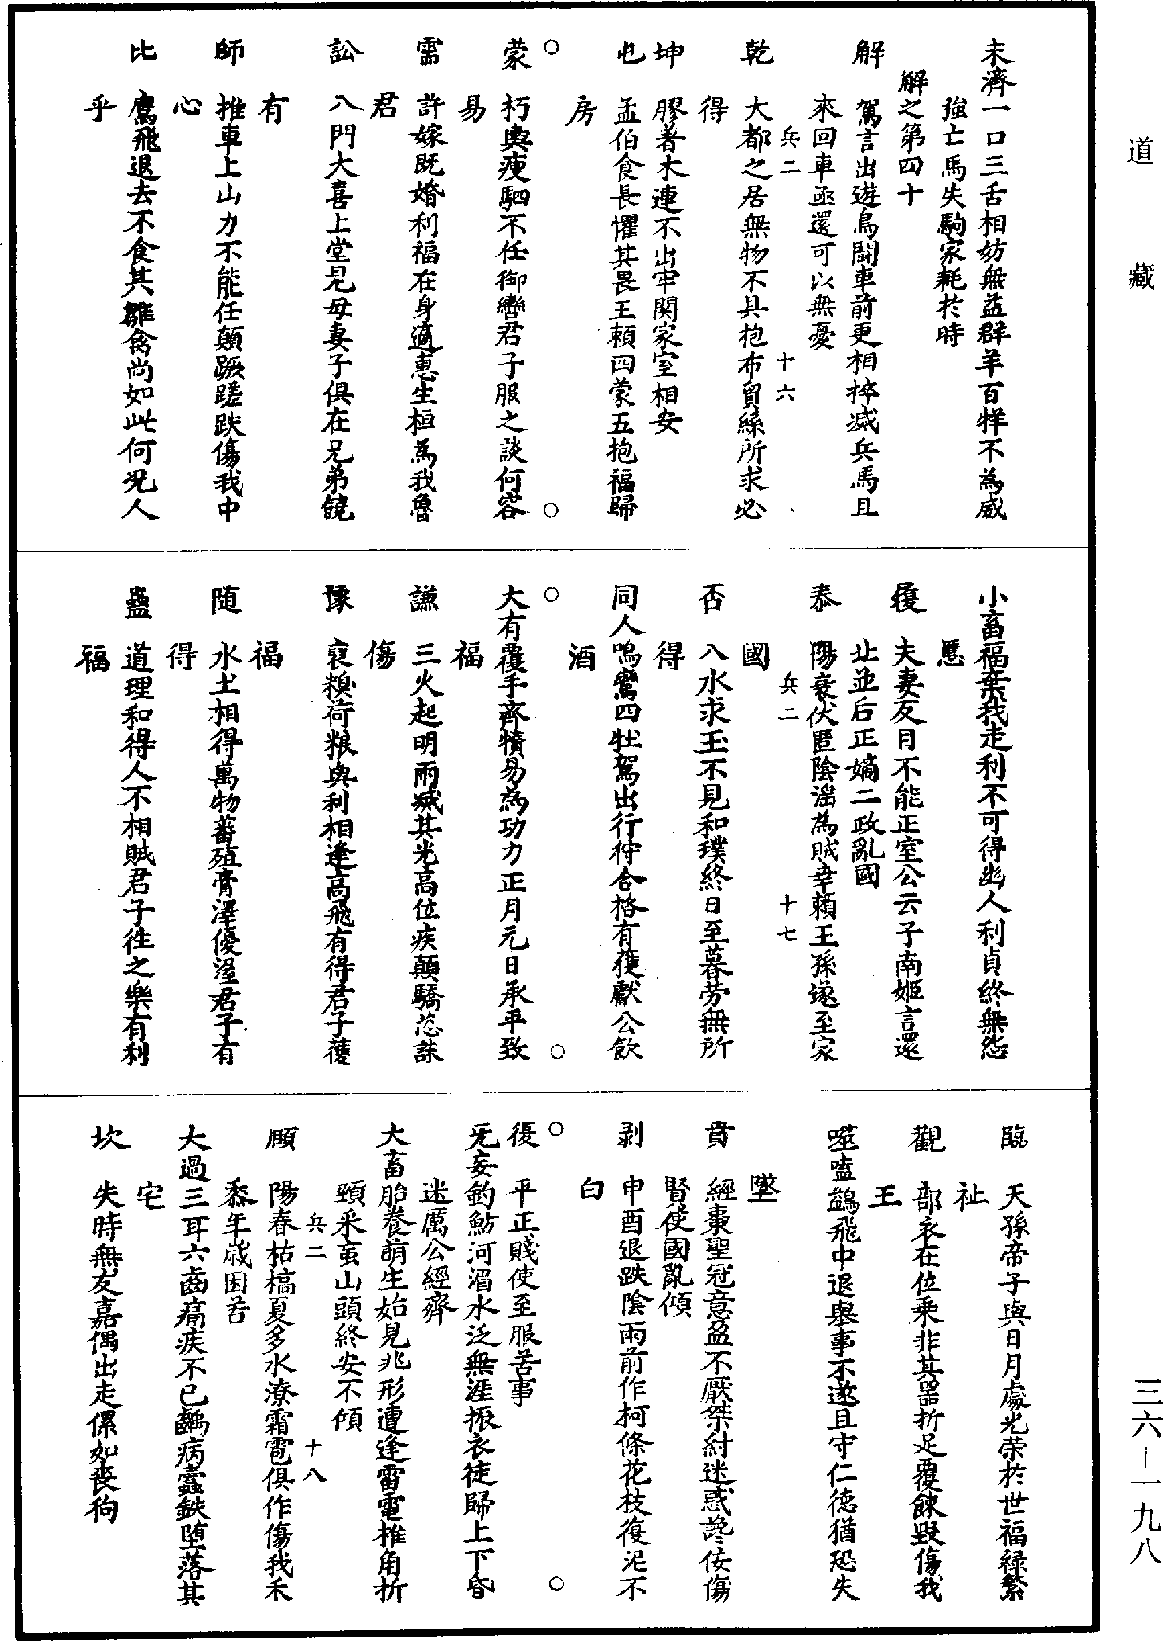 未濟一口三舌相妨無益群羊百牂不為威
強亡馬失駒家耗於時
解之第四十
解 駕言出遊鳥鬭車前更相捽滅兵馬且
來回車亟還可以無憂
兵二 十六
乾 大都之居無物不具抱布貿絲所求必
得
坤 膠著木連不出牢関家室相安
屯 孟伯食長懼其畏王賴四蒙五抱福歸
房
○ ○
蒙 朽輿瘦駟不任御轡君子服之談何容
易
需 許嫁既婚利福在身適惠生桓為我魯
君
訟 八門大喜上堂見母妻子俱在兄弟饒
有
師 推車上山力不能任顛蹶蹉跌傷我中
心
比 鷹飛退去不食其雛禽尚如此何況人
乎
小畜福棄我走利不可得幽人利貞終無怨
慝
履 夫妻反目不能正室公云子南姬言還
北並后正嫡二政亂國
泰 陽衰伏匿陰淫為賊幸賴王孫遂至家
國
兵二 十七
否 八水求玉不見和璞終日至暮勞無所
得
同人鳴鸞四牡駕出行狩合格有獲獻公飲
酒
○ ○
大有覆手齊犢易為功力正月元日承平致
福
謙 三火起明雨滅其光高位疾顛驕恣誅
傷
豫 裒糗荷粮與利相逢高飛有得君子獲
福
隨 水土相得萬物蕃殖膏澤優渥君子有
得
蠱 道理和得人不相賊君子往之樂有利
福
臨 天孫帝子與日月處光荣於世福祿繁
祉
觀 部衣在位乘非其器折足覆餗毀傷我
王
噬嗑鷁飛中退舉事不遂且守仁德猶恐失
墜
賁 經棗聖冠意盈不厭桀紂迷惑讒佞傷
賢使國亂傾
剥 申酉退跌陰雨前作柯條花枝復泥不
白
○ ○
復 平正賤使至服苦事
无妄釣魴河湄水泛無涯振衣徒歸上下昏
迷厲公經齊
大畜胎養萌生始見兆形遭逢雷電椎角折
頸采䖟山頭終安不傾
兵二 十八
頤 陽春枯槁夏多水潦霜雹俱作傷我禾
黍年歲困苦
大過三耳六齒痛疾不已齲病蠹鈌堕落其
宅
坎 失時無友嘉偶出走傫如丧狗
道藏
三六—一九八